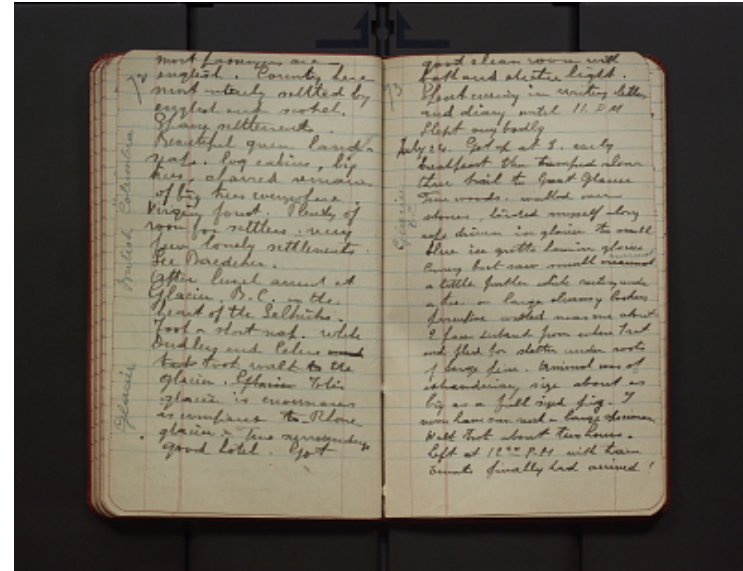 72
most passengers are
english. Country here
most interly settled by
english and scotch.
settlements.
Beautiful green land-
scape. Log cabins, big
trees, charred remains
of big trees everywhere.
Virgin forest. Plenty of
room for settlers. very
few lonely settlements.
See Baedeker.
After lunch arrived at
Glacier, B.C. in the
heart of the Selkirks.
Took a short nap. while
Dudley and Celine
took walk to the
glacier. This
glacier is enormous
as compared to Rhone
glacier. Fine surroundings
good hotel. Got
British Columbia
Glacier
73
good clean room with
bath and electric light.
Spent evening in writing letters
and diary until 11. P.M
Slept very badly
July 24. Got up at 8. early
breakfast then tramped alone
trail to Great Glacier
Fine woods. walked over
stones, myself along
rope driven in glacier to small
blue ice grotto
but saw small
a little further while resting under
a tree a large clumsy looking
porcupine walked near me about
from where I sat
and fled for shelter under roots
of large pine. Animal was of
size about as
big as a full sized pig. I
never have seen such a large specimen
Walk took about two hours.
Left at 12 P.M with train
Trunks finally had arrived!
Glacier
B.C.